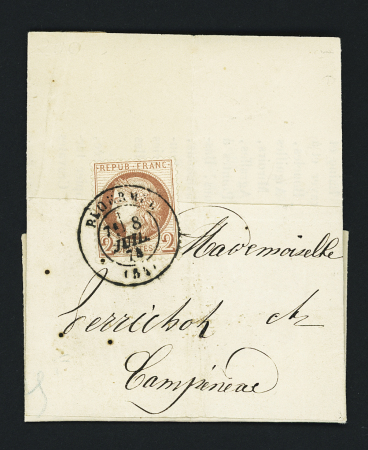 REPUB·FRANC·
PLOERMEL
7E 8
JUIL.
74
(54)
2 2
Mademoiselle
Perrichot A
Campénéac